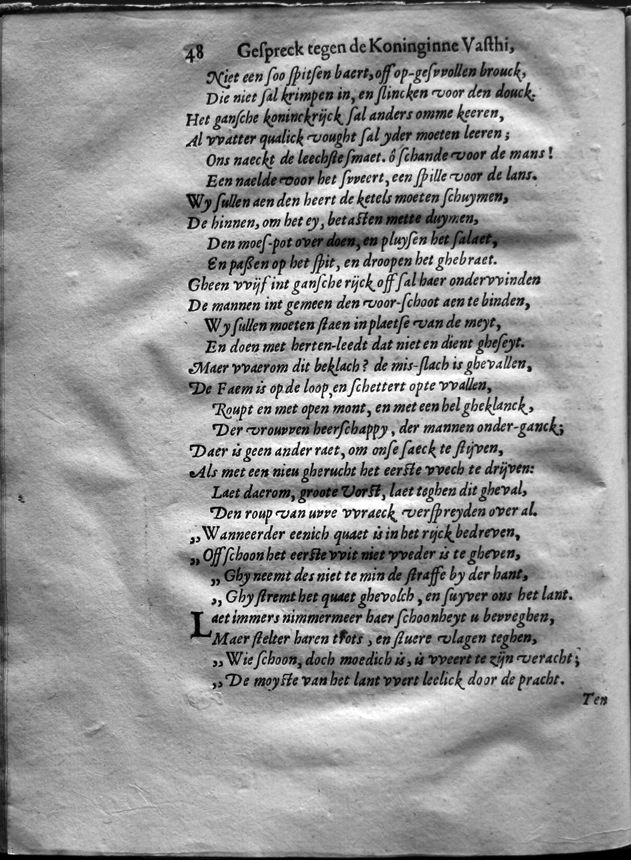 48 Geſpreck tegen de Koninginne Vaſthi,
Niet een ſoo ſpitſen baert, off op-geſvvollen brouck,
Die niet ſal krimpen in, en ſlincken voor den douck.
Het ganſche koninckrijck ſal anders omme keeren,
Al vvatter qualick vought ſal yder moeten leeren;
Ons naeckt de leechſte ſmaet. ô ſchande voor de mans!
Een naelde voor het ſvveert, een ſpille voor de lans.
Wy ſullen aen den heert de ketels moeten ſchuymen,
De hinnen, om het ey, betaſten mette duymen,
Den moeſ-pot over doen, en pluyſen het ſalaet,
En paßen op het ſpit, en droopen het ghebraet.
Gheen vvijf int ganſche rijck off ſal haer ondervvinden
De mannen int gemeen den voor-ſchoot aen te binden,
Wy ſullen moeten ſtaen in plaetſe van de meyt,
En doen met herten-leedt dat niet en dient gheſeyt.
Maer vvaerom dit beklach? de miſ-ſlach is ghevallen,
De Faem is op de loop, en ſchettert opte vvallen,
Roupt en met open mont, en met een hel gheklanck,
Der vrouvven heerſchappy, der mannen onder-ganck;
Daer is geen ander raet, om onſe ſaeck te ſtijven,
Als met een nieu gherucht het eerſte vvech te drijven:
Laet daerom, groote Vorſt, laet teghen dit gheval,
Den roup van uvve vvraeck verſpreyden over al.
,, Wanneerder eenich quaet is in het rijck bedreven,
,, Off ſchoon het eerſte vvit niet vveder is te gheven,
,, Ghy neemt des niet te min de ſtraffe by der hant,
,, Ghy ſtremt het quaet ghevolch, en ſuyver ons het lant.
Laet immers nimmermeer haer ſchoonheyt u bevveghen,
Maer ſtelter haren trots, en ſtuere vlagen teghen,
,, Wie ſchoon, doch moedich is, is vveert te zijn veracht;
,, De moyſte van het lant vvert leelick door de pracht.
Ten